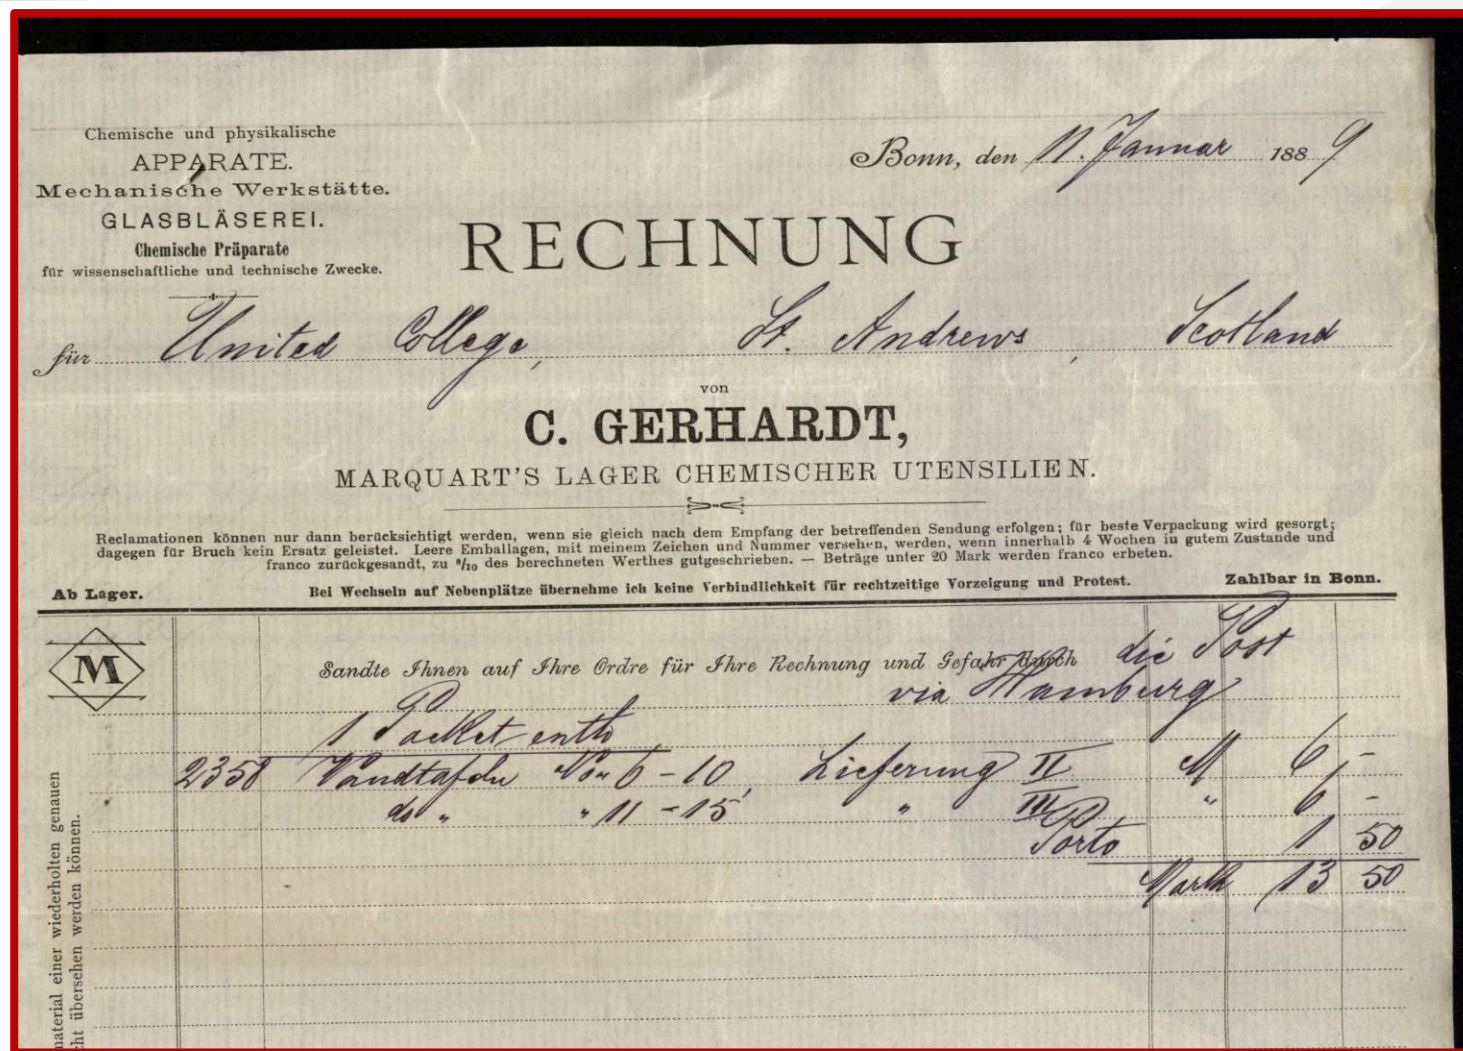 Chemische und physikalische
APPARATE.
Mechanische Werkstätte.
GLASBLÄSEREI.
Chemische Präparate
für wissenschaftliche und technische Zwecke.
Bonn, den 11. Januar 1889
RECHNUNG
für United College, St. Andrews, Scotland
von
C. GERHARDT,
MARQUART'S LAGER CHEMISCHER UTENSILIEN.
Reclamationen können nur dann berücksichtigt werden, wenn sie gleich nach dem Empfang der betreffenden Sendung erfolgen; für beste Verpackung wird gesorgt;
dagegen für Bruch kein Ersatz geleistet. Leere Emballagen, mit meinem Zeichen und Nummer versehen, werden, wenn innerhalb 4 Wochen in gutem Zustande und
franco zurückgesandt, zu 9/10 des berechneten Werthes gutgeschrieben. — Beträge unter 20 Mark werden franco erbeten.
Ab Lager. Bei Wechseln auf Nebenplätze übernehme ich keine Verbindlichkeit für rechtzeitige Vorzeigung und Protest. Zahlbar in Bonn.
M
Sandte Ihnen auf Ihre Ordre für Ihre Rechnung und Gefahr durch die Post
via Hamburg
1 Packet enth
2358 Wandtafeln No. 6 - 10, Lieferung II M 6 -
do " " 11 - 15 " III " 6 -
Porto 1 50
Mark 13 50
material einer wiederholten genauen
cht übersehen werden können.